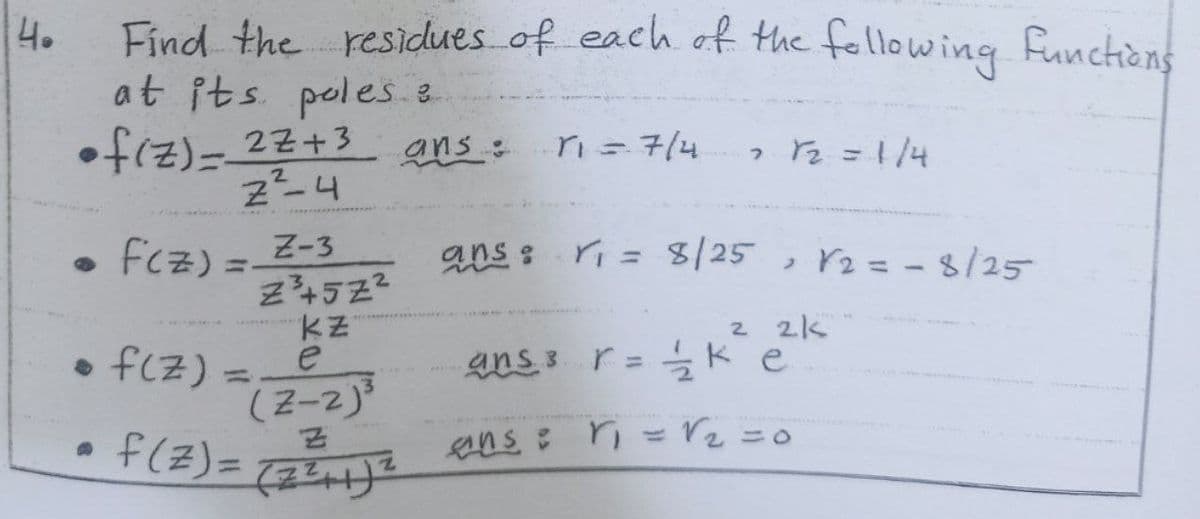 4. Find the residues of each of the following functions
at its poles :
• f(z) = (2z+3)/(z²-4) ans : r₁ = 7/4 , r₂ = 1/4
• f(z) = (z-3)/(z³+5z²) ans : r₁ = 8/25 , r₂ = -8/25
• f(z) = e^(kz)/(z-2)³ ans : r = ½ k² e^(2k)
• f(z) = z/(z²+1)² ans : r₁ = r₂ = 0